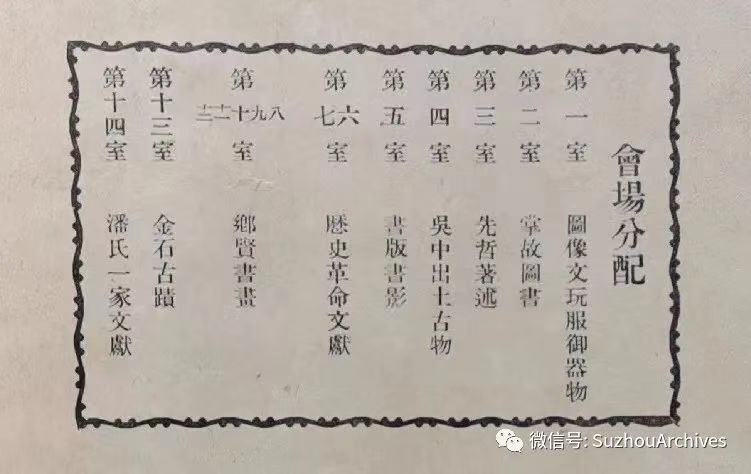 會場分配
第一室 圖像文玩服御器物
第二室 掌故圖書
第三室 先哲著述
第四室 吳中出土古物
第五室 書版書影
第六七室 歷史革命文獻
第八九十十一十二室 鄉賢書畫
第十三室 金石古蹟
第十四室 潘氏一家文獻
微信号: SuzhouArchives